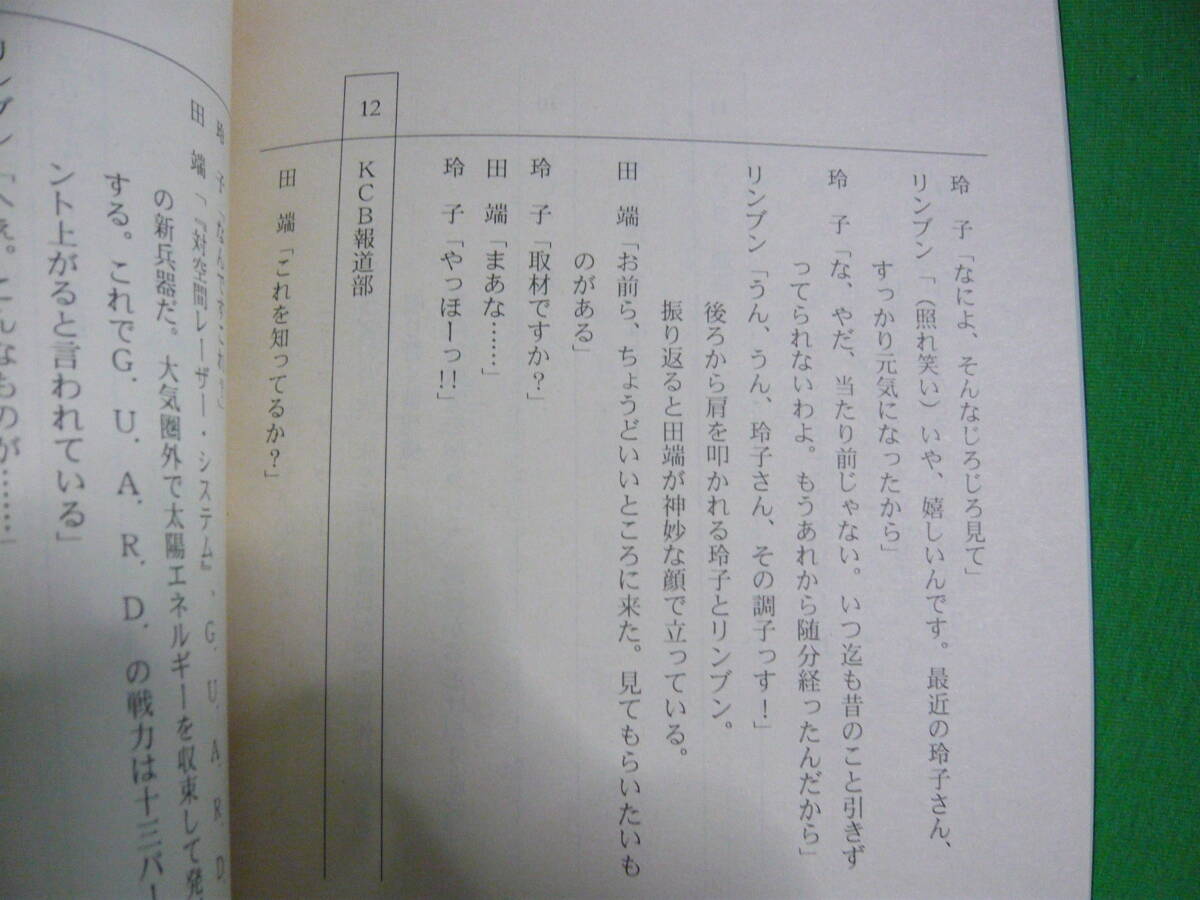 玲　子「なによ、そんなじろじろ見て」
リンブン「（照れ笑い）いや、嬉しいんです。最近の玲子さん、
すっかり元気になったから」
玲　子「な、やだ、当たり前じゃない。いつ迄も昔のこと引きず
ってられないわよ。もうあれから随分経ったんだから」
リンブン「うん、うん、玲子さん、その調子っす！」
後ろから肩を叩かれる玲子とリンブン。
振り返ると田端が神妙な顔で立っている。
田　端「お前ら、ちょうどいいところに来た。見てもらいたいも
のがある」
玲　子「取材ですか？」
田　端「まあな……」
玲　子「やっほーっ!!」
12　KCB報道部
田　端「これを知ってるか？」
玲　子「なんですこれ？」
田　端「『対空間レーザー・システム』、G．U．A．R．D．
の新兵器だ。大気圏外で太陽エネルギーを収束して発
する。これでG．U．A．R．D．の戦力は十三パー
ント上がると言われている」
リンブン「へえ。こんなものが……」